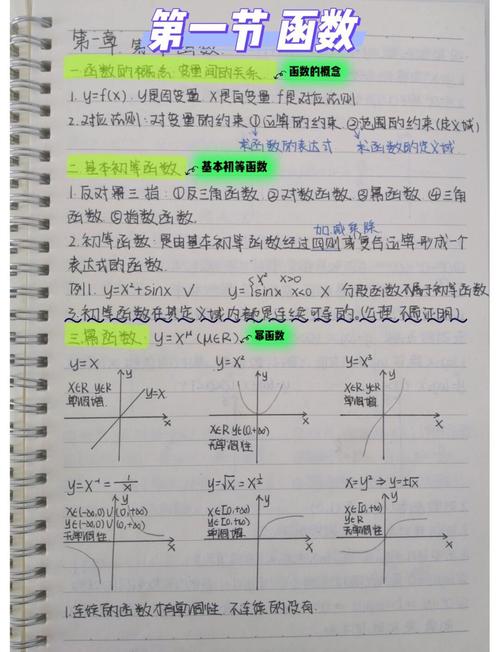 第一节 函数
第一章 函数.
一.函数的概念:变量间的关系. 函数的概念
1. y=f(x). y是因变量 x是自变量 f是对应法则
2.对应法则:对变量的约束 ①运算的约束 ②范围的约束(定义域)
求函数的表达式 求函数的定义域
二.基本初等函数. 基本初等函数
1.反对幂三指:①反三角函数 ②对数函数 ③幂函数 ④三角
函数 ⑤指数函数.
加减乘除
2.初等函数:是由基本初等函数经过四则或复合运算形成一个
表达式的函数.
例1. y=x²+sinx √ y={x² x>0 sinx x<0 × 分段函数不属于初等函数
3.初等函数在其定义域内都是连续可导的.(公理 不需证明)
三.幂函数: y=x^μ(μ∈R) 幂函数
y=x y=x² y=x³
x∈R y∈R
单调增
y=x
x∈R y∈(0,+∞)
无单调性
x∈R y∈R
单调增.
y=x⁻¹=1/x y=√x=x^½ x=y² ⇒ y=±√x
x∈(-∞,0)∪(0,+∞)
y∈(-∞,0)∪(0,+∞)
无单调性
x∈[0,+∞)
y∈[0,+∞)
单调增
x∈[0,+∞)
y∈R
无单调性
1.连续的函数才有单调性.不连续的没有.